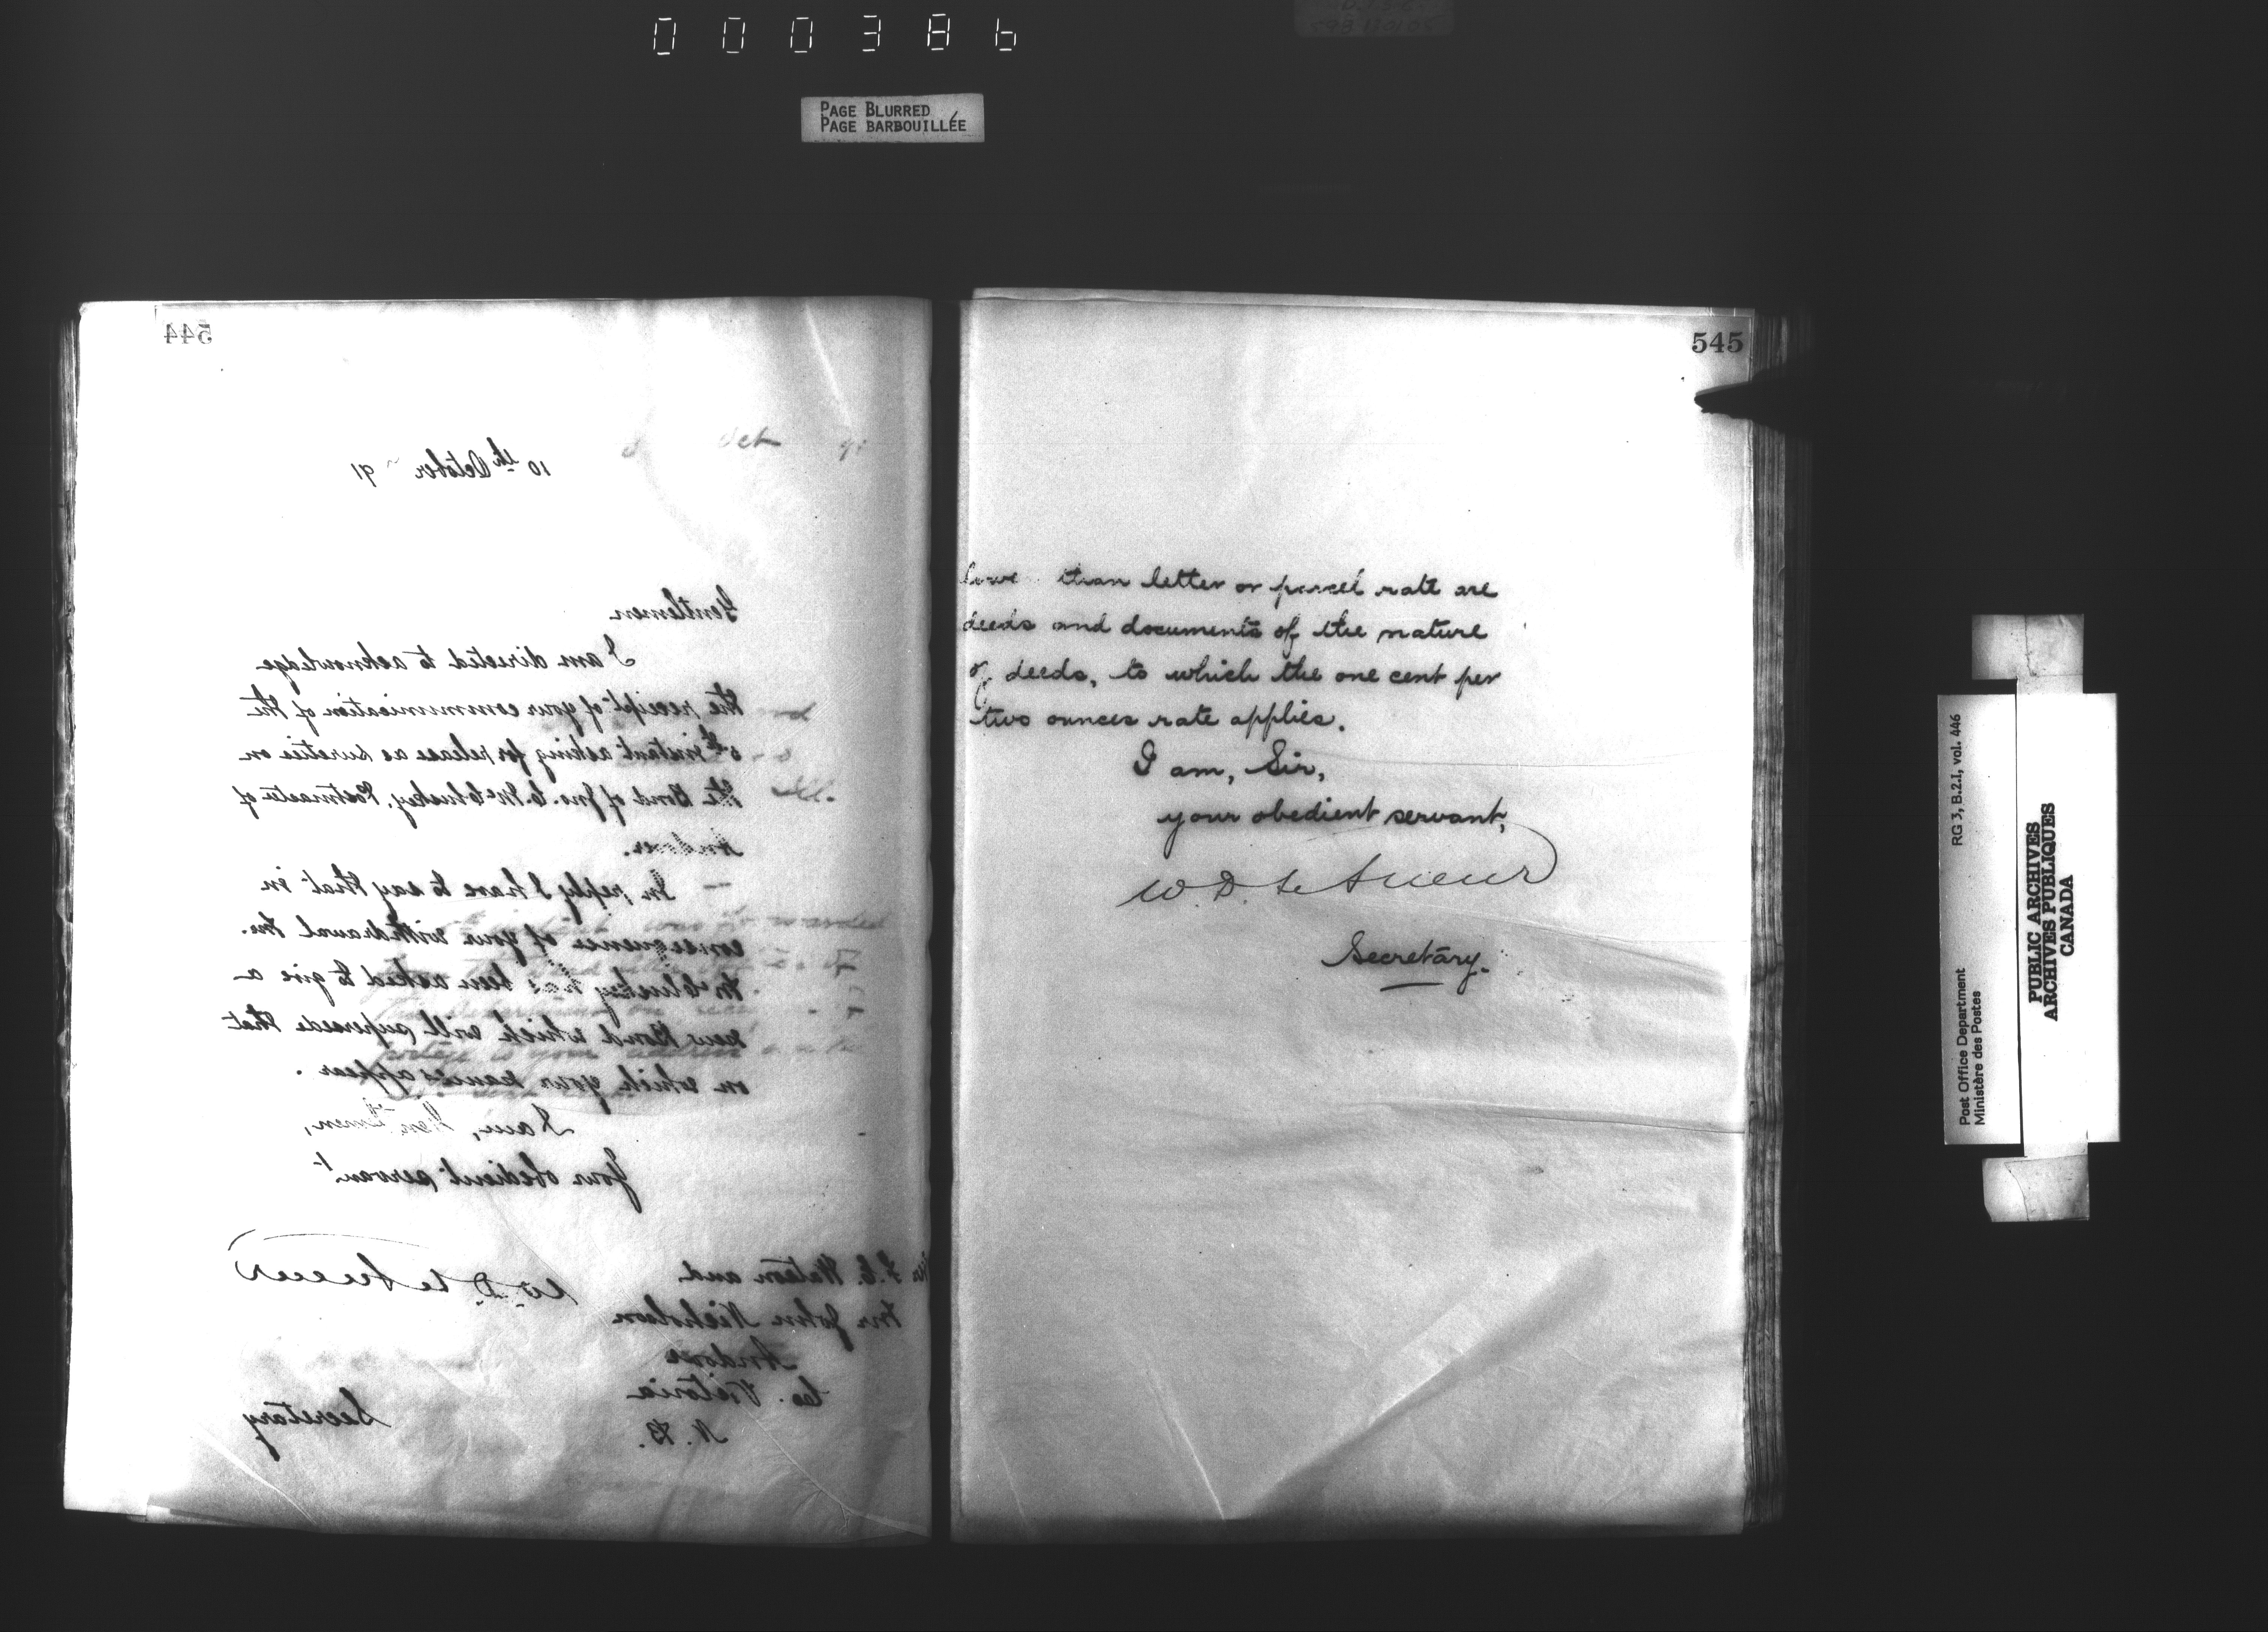 000386
PAGE BLURRED
PAGE BARBOUILLÉE
544
10th October 91
Oct
Gentlemen
I am directed to acknowledge
the receipt of your communication of the
instant asking for release as sureties on
the Bond of Jno. C. McCluskey, Postmaster of
Andover.
In reply I have to say that in
consequence of your withdrawal Mr.
McCluskey has been asked to give a
new Bond which will supersede that
on which your names appear.
I am, Gentlemen,
Your obedient servant
W. D. LeSueur
Secretary
F. C. Watson and
Mr John Nicholson
Andover
Co. Victoria
N. B.
545
than letter or parcel rate are
deeds and documents of the nature
of deeds, to which the one cent per
two ounces rate applies.
I am, Sir,
your obedient servant,
W. D. LeSueur
Secretary.
Post Office Department
Ministère des Postes
RG 3, B.2.I, vol. 446
PUBLIC ARCHIVES
ARCHIVES PUBLIQUES
CANADA